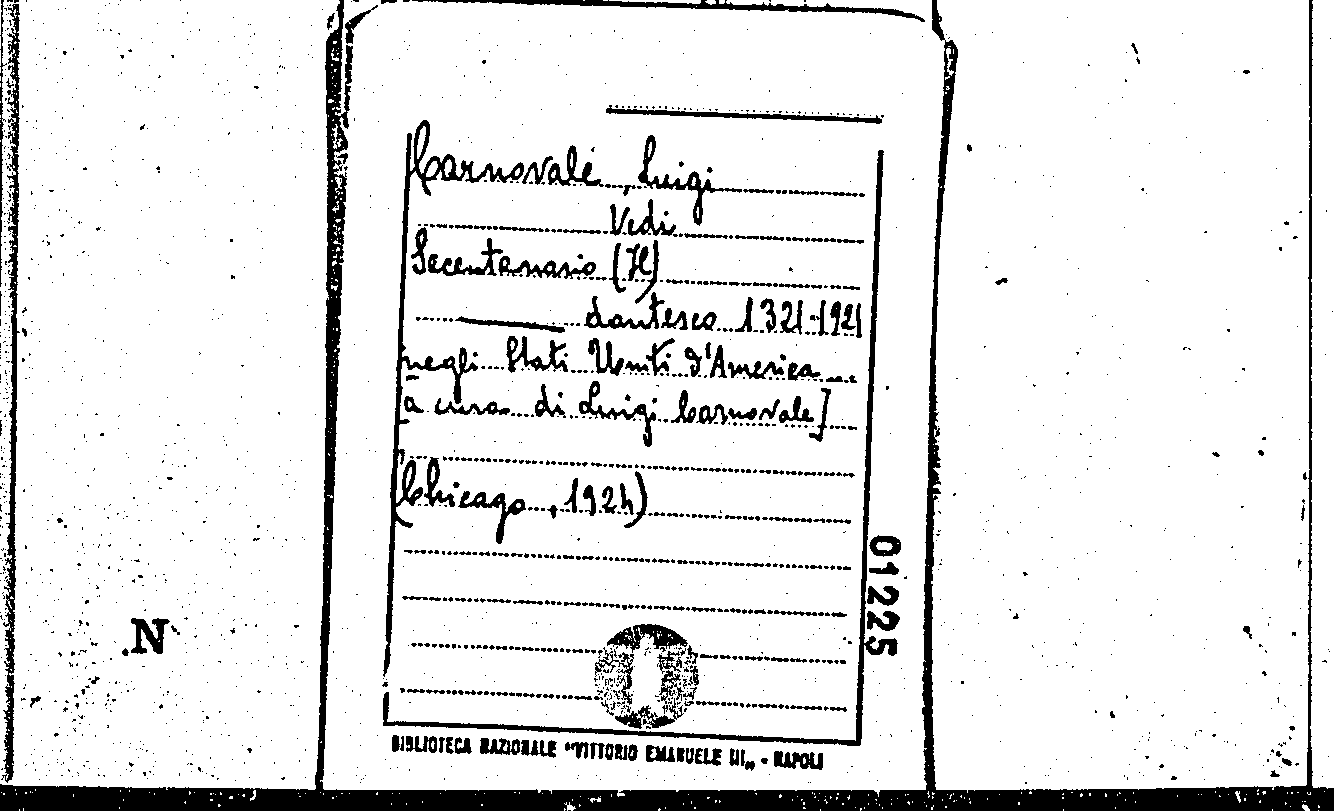 Carnovale, Luigi
Vedi
Secentenario (Il)
—— dantesco 1321-1921
negli Stati Uniti d'America...
[a cura di Luigi Carnovale]
(Chicago, 1924)
01225
N
BIBLIOTECA NAZIONALE "VITTORIO EMANUELE III„ - NAPOLI